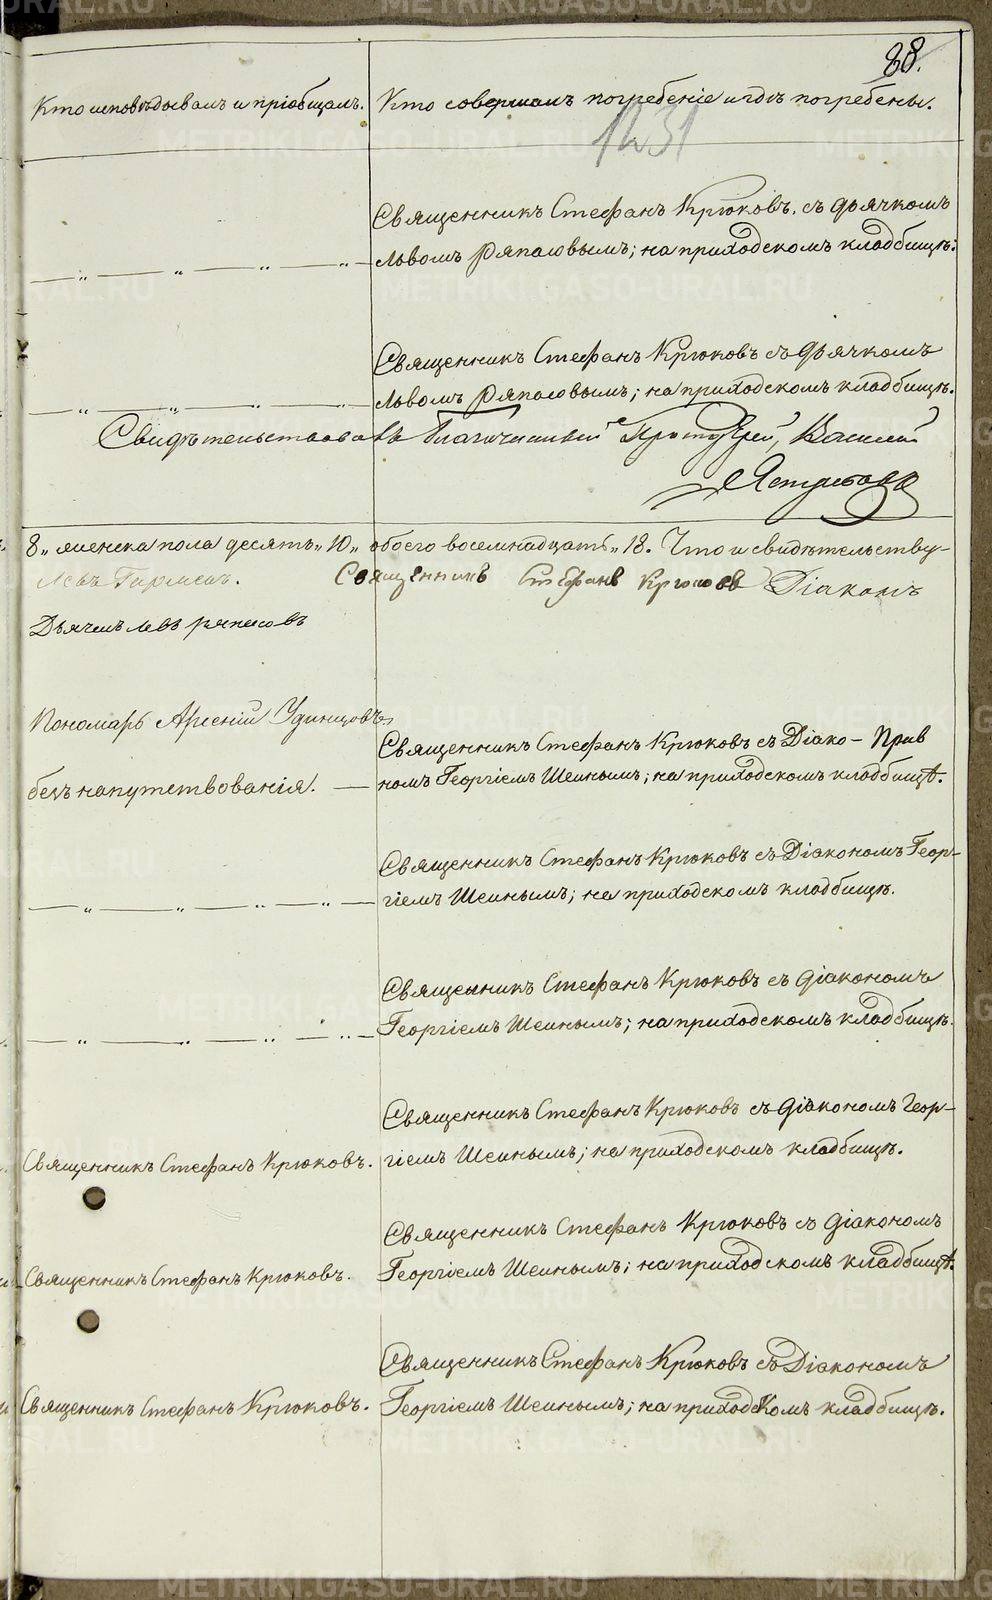 88.
Кто исповѣдывалъ и пріобщалъ.
Кто совершалъ погребеніе и гдѣ погребены.
1231
Священникъ Стефанъ Крюковъ, съ дьячкомъ
Львомъ Ряпасовымъ; на приходскомъ кладбищѣ.
Священникъ Стефанъ Крюковъ съ дьячкомъ
Львомъ Ряпасовымъ; на приходскомъ кладбищѣ.
Свидѣтельствовалъ Благочинный Протоіерей, Василій
8„ женска пола десять„ 10„ обоего восемнадцать„ 18. Что и свидѣтельству-
Священникъ Стефанъ Крюковъ Діаконъ
Дьячекъ Левъ Ряпасовъ
Пономарь Арсеній Удинцовъ
Священникъ Стефанъ Крюковъ съ Діако-
номъ Георгіемъ Шеинымъ; на приходскомъ кладбищѣ.
безъ напутствованія.
Священникъ Стефанъ Крюковъ съ Діакономъ Геор-
гіемъ Шеинымъ; на приходскомъ кладбищѣ.
Священникъ Стефанъ Крюковъ съ діакономъ
Георгіемъ Шеинымъ; на приходскомъ кладбищѣ.
Священникъ Стефанъ Крюковъ съ діакономъ Геор-
гіемъ Шеинымъ; на приходскомъ кладбищѣ.
Священникъ Стефанъ Крюковъ.
Священникъ Стефанъ Крюковъ съ діакономъ
Георгіемъ Шеинымъ; на приходскомъ кладбищѣ.
Священникъ Стефанъ Крюковъ.
Священникъ Стефанъ Крюковъ съ Діакономъ
Георгіемъ Шеинымъ; на приходскомъ кладбищѣ.
Священникъ Стефанъ Крюковъ.
METRIKI.GASO-URAL.RU